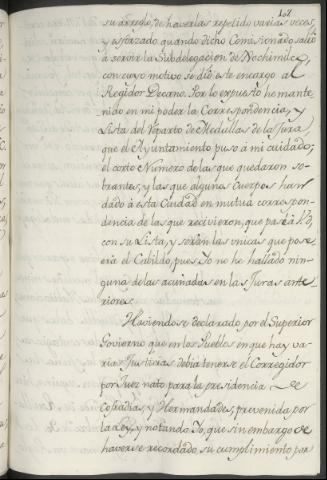 101
su arreglo, de haverlas repetido varias veces,
y esforzado quando dicho Comisionado salió
á servir la Subdelegacion de Xochimilco,
con cuyo motivo se dió este encargo al
Regidor Decano. Por lo expuesto he mante
nido en mi poder la Correspondencia, y
Lista del Reparto de Medallas de la Jura,
que el Ayuntamiento puso á mi cuidado;
el corto Numero de las que quedaron so-
brantes, y las que algunos Cuerpos han
dado á esta Ciudad en mutua correspon-
dencia de las que recivieron, que pasé á
con su Lista, y serán las unicas que pose
erá el Cabildo, pues Yo no he hallado nin-
guna de las acuñadas en las Juras ante-
riores.
Haviendose declarado por el Superior
Govierno que en los Pueblos en que hay va-
rias Justicias debia tenerse el Corregidor
por Juez nato para la presidencia de
Cofradias, y Hermandades, prevenida por
la Ley, y notando Yo, que sin embargo de
haverse recordado su cumplimiento por